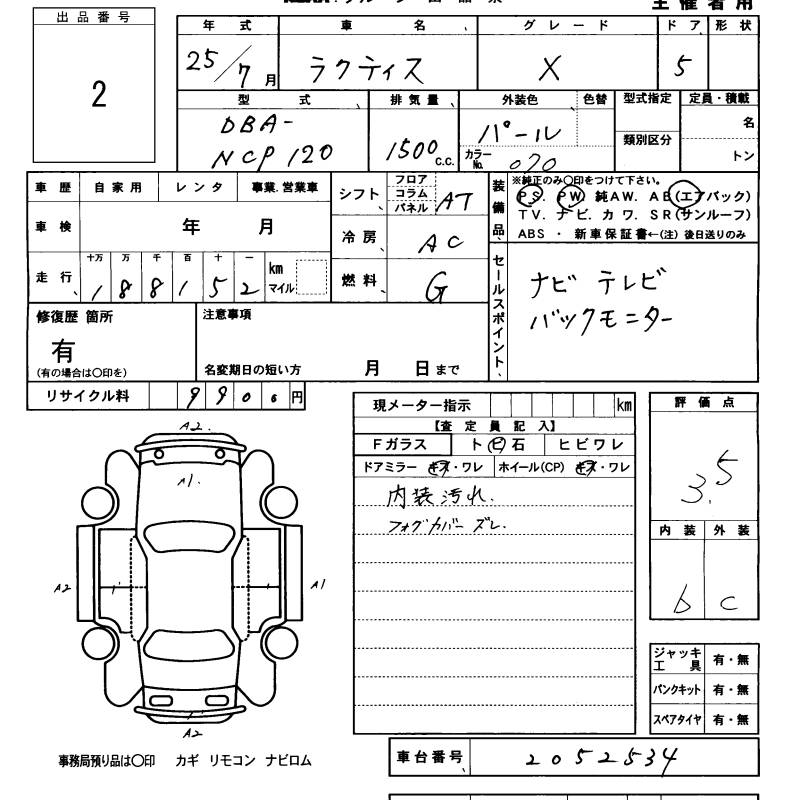 主催者用
出品番号
2
年式 車名 グレード ドア 形状
25/7月 ラクティス X 5
型式 排気量 外装色 色替 型式指定 定員・積載
DBA-
NCP120 1500 c.c. パール カラーNo. 070 類別区分 名 トン
車歴 自家用 レンタ 事業.営業車
車検 年 月
走行 十万 万 千 百 十 一 km マイル
188152
シフト フロア コラム パネル AT
冷房 AC
燃料 G
装備品
※純正のみ○印をつけて下さい。
PS. PW. 純AW. AB(エアバック)
TV. ナビ. カワ. SR(サンルーフ)
ABS ・ 新車保証書←(注) 後日送りのみ
セールスポイント
ナビ テレビ
バックモニター
修復歴 箇所
有
(有の場合は○印を)
注意事項
名変期日の短い方 月 日まで
リサイクル料 9906円
現メーター指示 km
【査定員記入】
Fガラス トビ石 ヒビワレ
ドアミラー キズ・ワレ ホイール(CP) キズ・ワレ
内装汚れ.
フォグカバー ズレ.
評価点
3.5
内装 外装
b c
ジャッキ工具 有・無
パンクキット 有・無
スペアタイヤ 有・無
A2.
A1.
A2
A1
A2
事務局預り品は○印 カギ リモコン ナビロム
車台番号 2052534